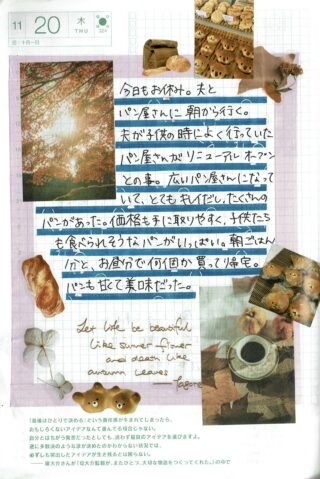 11
20
木
THU
324
今日もお休み。夫と
パン屋さんに朝から行く。
夫が子供の時によく行っていた
パン屋さんがリニューアルオープン
との事。広いパン屋さんになって
いて、とてもキレイだし、たくさんの
パンがあった。価格も手に取りやすく、子供たち
も食べられそうなパンがいっぱい。朝ごはん
分と、お昼分で何個か買って帰宅。
パンも甘くて美味だった。
Let life be beautiful
like summer flower
and death like
autumn leaves
Tagore
「最後はひとりで決める」という責任感が生まれてしまったら、
おもしろくないアイデアなんて選んでる場合じゃない。
自分とはちがう発言だったとしても、迷わず最良のアイデアを選びますよ。
逆に多数決のような誰が決めたのかわからない状況では、
必ずしも突出したアイデアが生き残るとは限らない。
──堤大介さんが『堤大介監督が、またひとつ、大切な物語をつくってくれた。』の中で